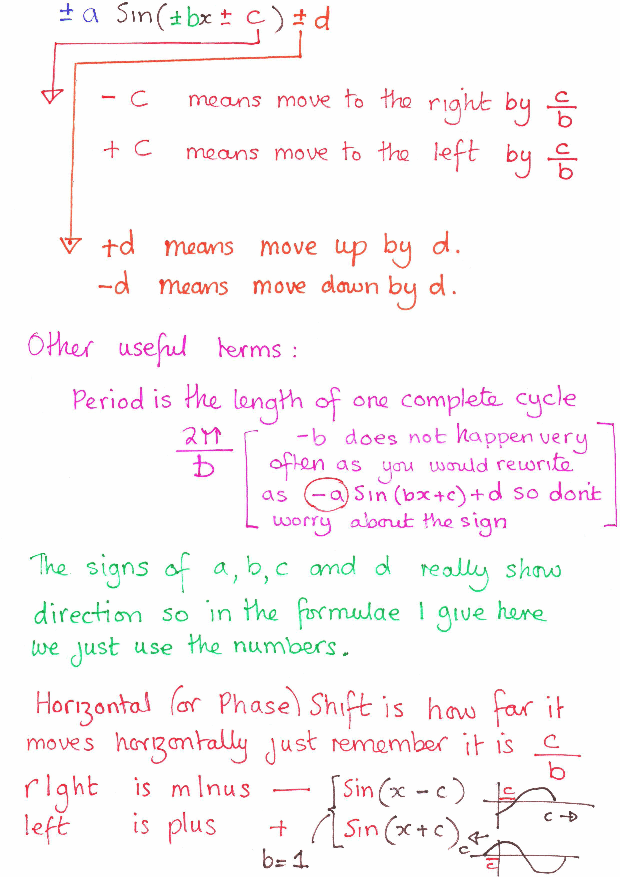 ± a Sin(±bx ± c) ± d
- C means move to the right by c/b
+ C means move to the left by c/b
+d means move up by d.
-d means move down by d.
Other useful terms:
Period is the length of one complete cycle
2π/b [ -b does not happen very
often as you would rewrite
as -a Sin(bx+c)+d so don't
worry about the sign ]
The signs of a, b, c and d really show
direction so in the formulae I give here
we just use the numbers.
Horizontal (or Phase) Shift is how far it
moves horizontally just remember it is c/b
rIght is mInus — [Sin(x - c) c c→
left is plus + [Sin(x+c) c← c
b=1